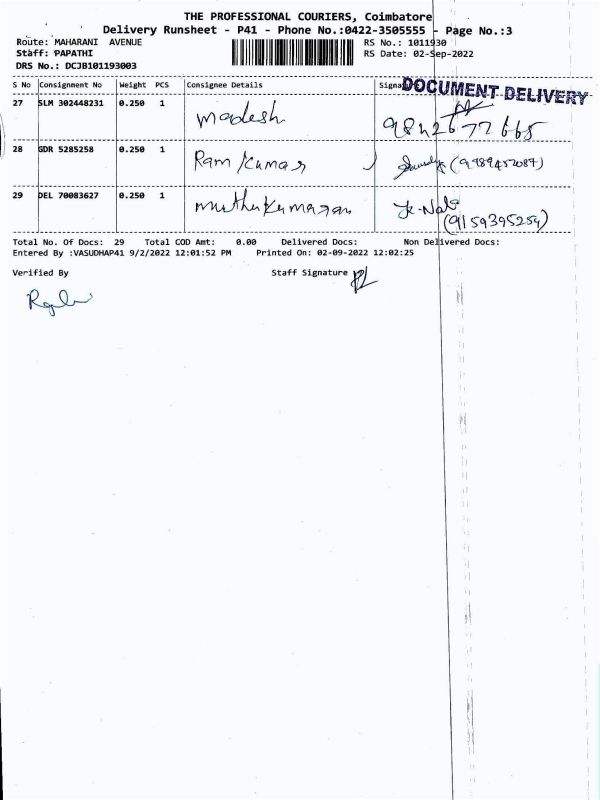 THE PROFESSIONAL COURIERS, Coimbatore
Delivery Runsheet - P41 - Phone No.:0422-3505555 - Page No.:3
Route: MAHARANI AVENUE RS No.: 1011930
Staff: PAPATHI RS Date: 02-Sep-2022
DRS No.: DCJB101193003
S No Consignment No Weight PCS Consignee Details Signa
DOCUMENT DELIVERY
27 SLM 302448231 0.250 1 madesh
9842677665
28 GDR 5285258 0.250 1 Ram Kumar (9789452087)
29 DEL 70083627 0.250 1 muthu Kumaran
(9159395254)
Total No. Of Docs: 29 Total COD Amt: 0.00 Delivered Docs: Non Delivered Docs:
Entered By :VASUDHAP41 9/2/2022 12:01:52 PM Printed On: 02-09-2022 12:02:25
Verified By Staff Signature